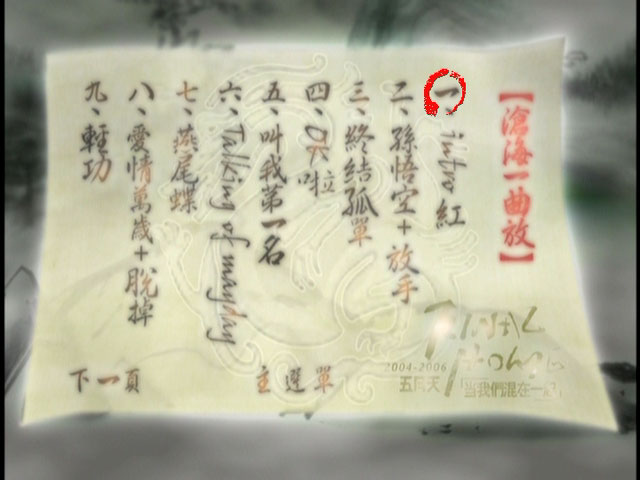 【滄海一曲放】
一、intro 紅
二、孫悟空+放手
三、終結孤單
四、OK啦
五、叫我第一名
六、Talking of mayday
七、燕尾蝶
八、愛情萬歲+脫掉
九、輕功
下一頁
主選單
FINAL HOME
2004-2006
五月天「當我們混在一起」